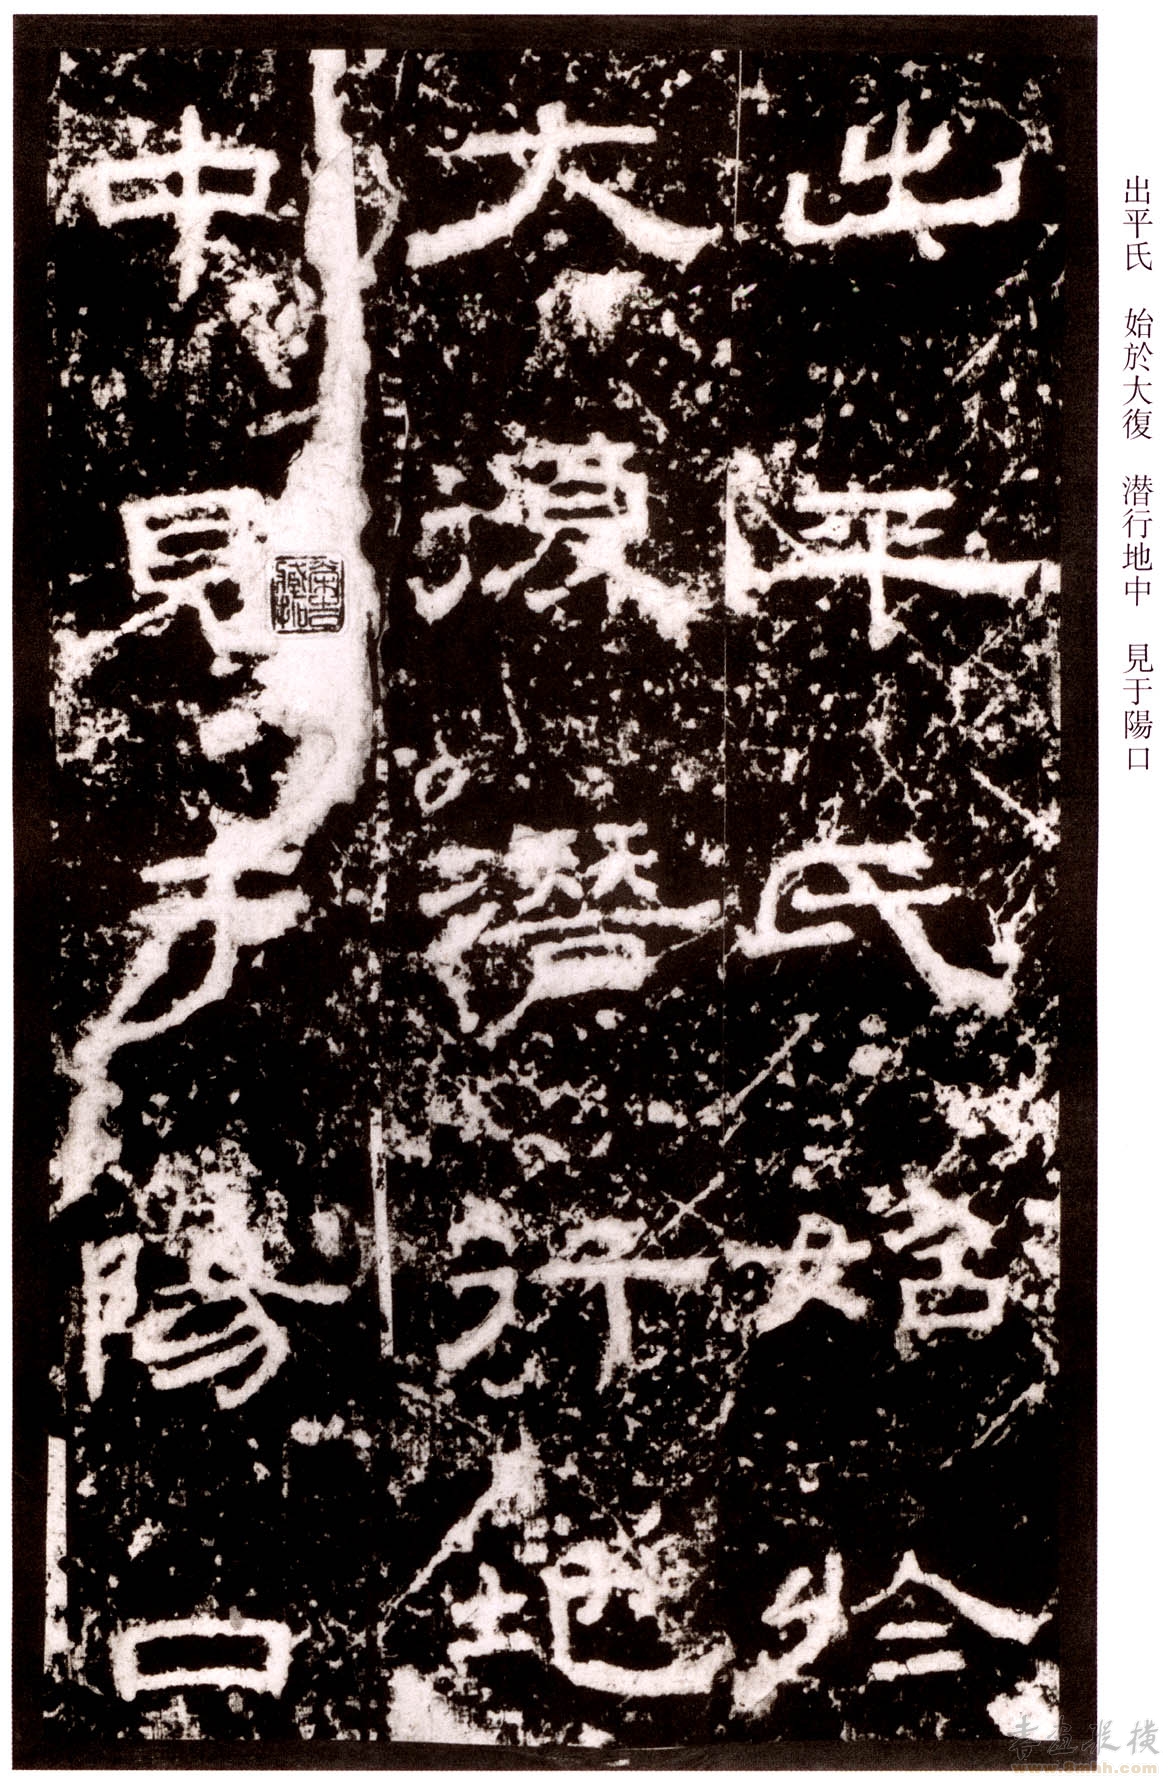 出平氏　始於大復　潜行地中　見于陽口
出平氏始於
大復潛行地
中見于陽口
書畫縱橫